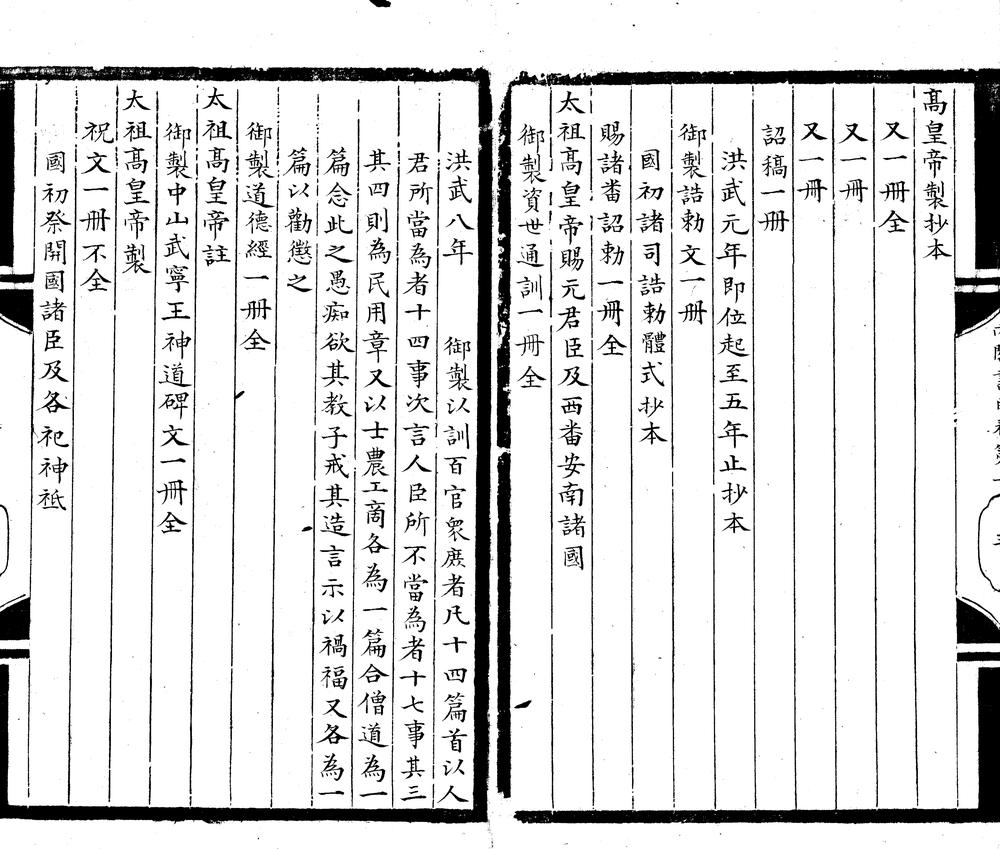 髙皇帝製抄本
又一冊全
又一冊
又一冊
詔稿一冊
洪武元年即位起至五年止抄本
御製誥勅文一册
國初諸司誥勅體式抄本
賜諸畨詔勅一冊全
太祖髙皇帝賜元君臣及西畨安南諸國
御製資世通訓一冊全
洪武八年　御製以訓百官衆庻者凡十四篇首以人
君所當為者十四事次言人臣所不當為者十七事其三
其四則為民用章又以士農工商各為一篇合僧道為一
篇念此之愚痴欲其教子戒其造言示以禍福又各為一
篇以勸懲之
御製道德經一冊全
太祖髙皇帝註
御製中山武寧王神道碑文一冊全
太祖髙皇帝製
祝文一冊不全
國初祭開國諸臣及各祀神祗